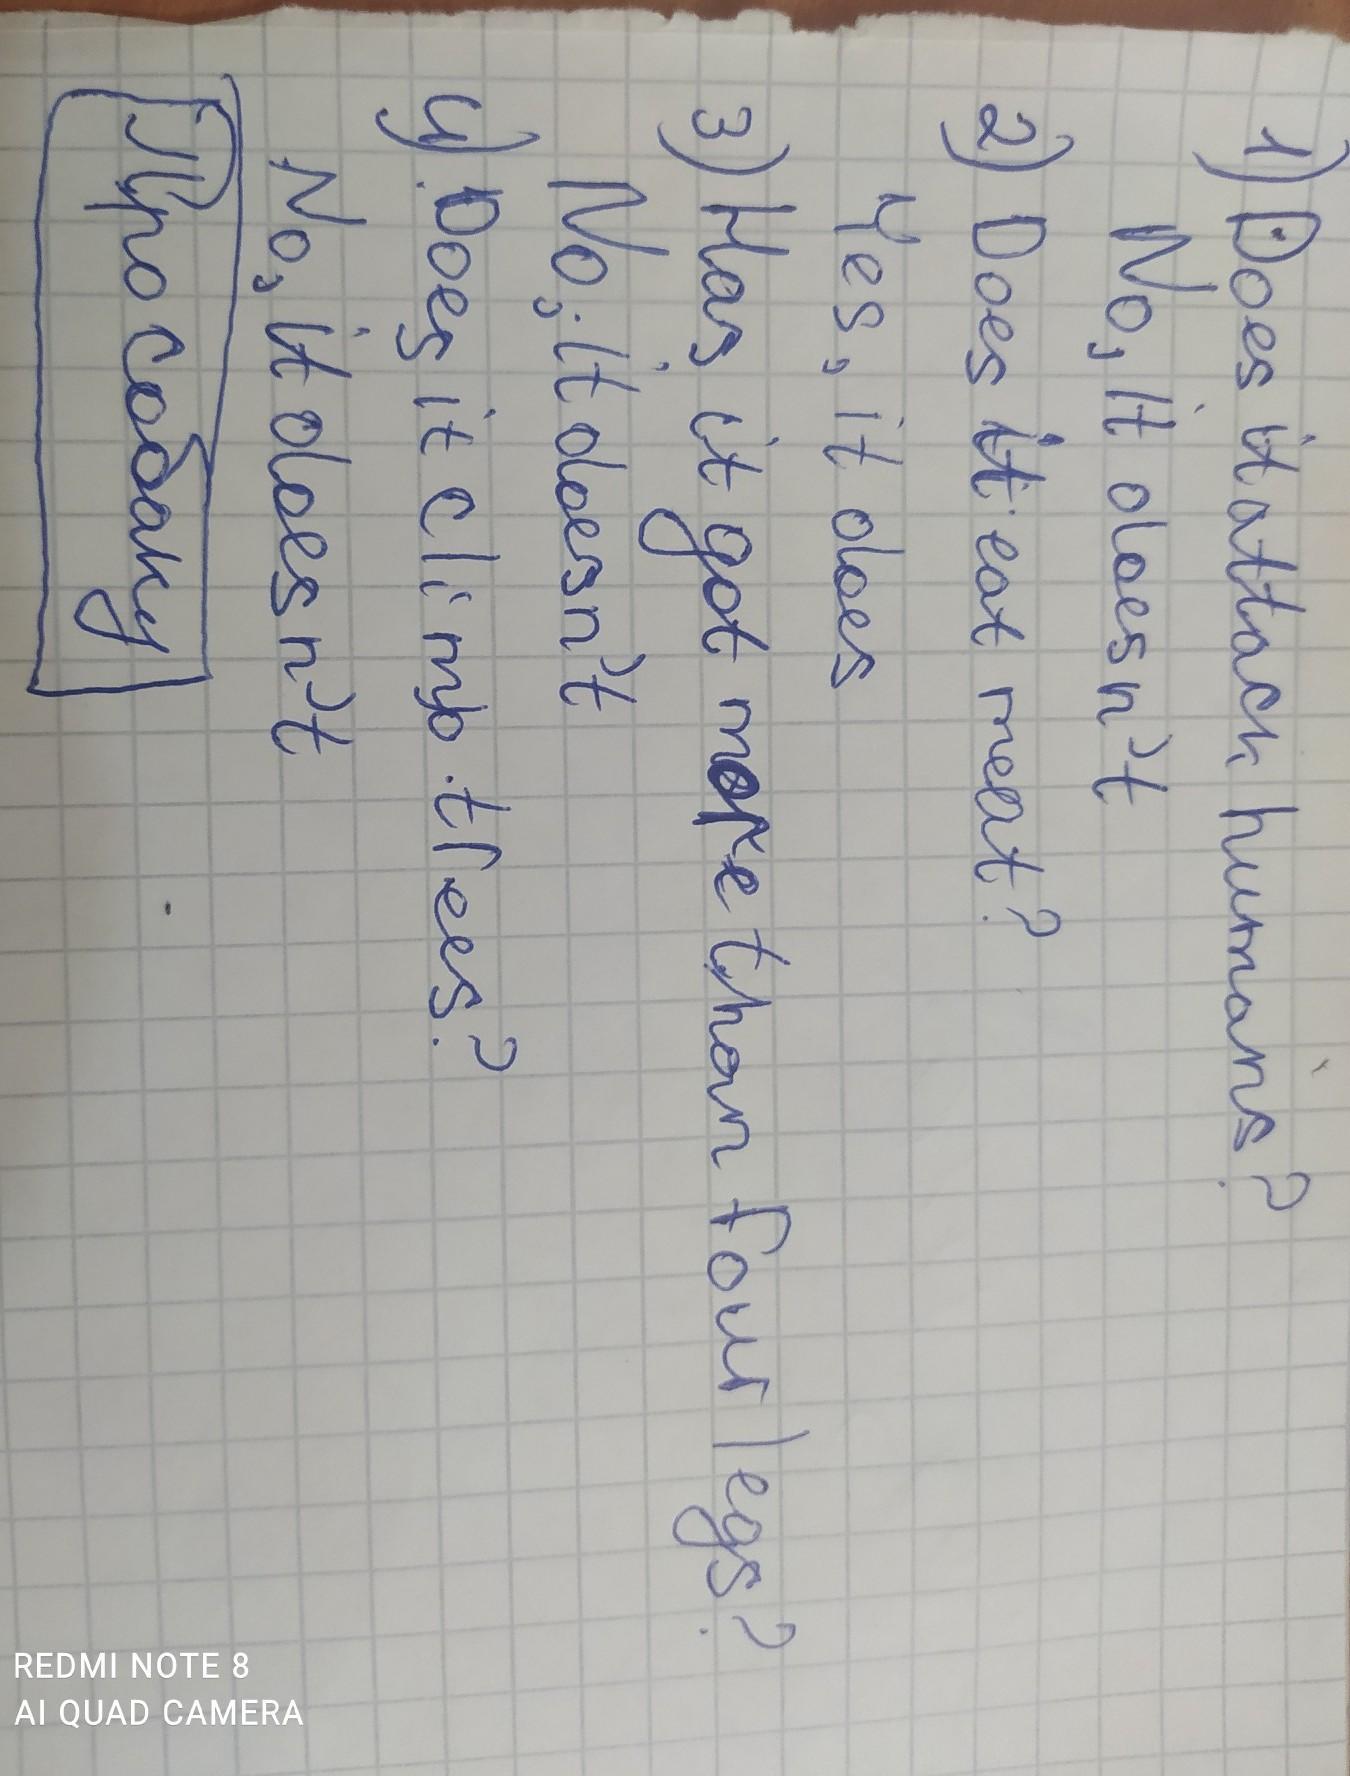 1) Does it attack humans?
No, it doesn't
2) Does it eat meat?
Yes, it does
3) Has it got more than four legs?
No, it doesn't
4) Does it climb trees?
No, it doesn't
Про собаку
REDMI NOTE 8
AI QUAD CAMERA